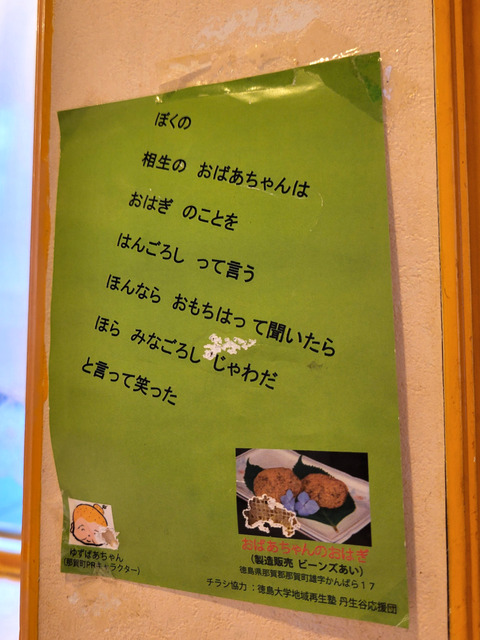 ぼくの
相生の おばあちゃんは
おはぎ のことを
はんごろし って言う
ほんなら おもちはって聞いたら
ほら みなごろし じゃわだ
と言って笑った
おばあちゃんのおはぎ
(製造販売 ビーンズあい)
徳島県那賀郡那賀町雄字かんばら17
ゆずばあちゃん
(那賀町PRキャラクター)
チラシ協力：徳島大学地域再生塾 丹生谷応援団